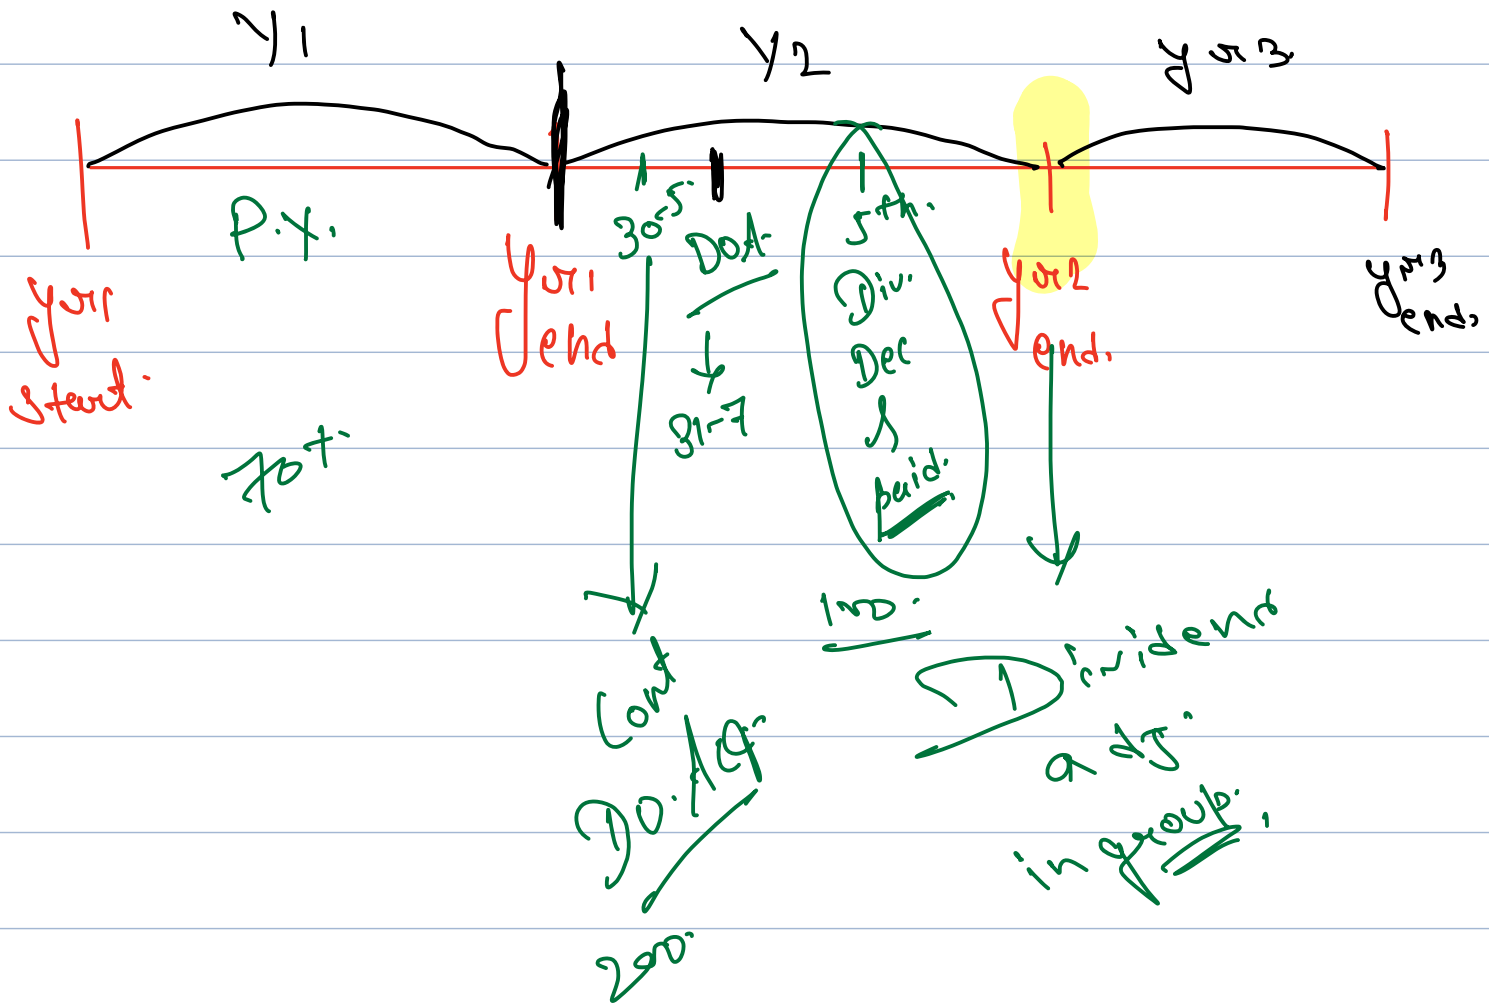 Y1
Y2
yr3
P.Y.
yr1
start
yr1
end
30-5
DOA
31-7
5th.
Div.
Dec
&
paid.
yr2
end.
yr3
end.
70+
100
Cont
DO.Acq.
200
Dividend
adj.
in group.